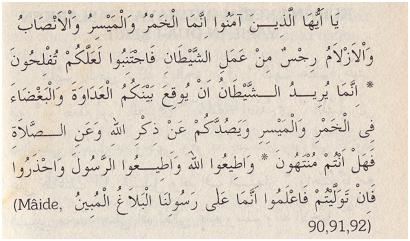 يَا اَيُّهَا الَّذِينَ آمَنُوا اِنَّمَا الْخَمْرُ وَالْمَيْسِرُ وَالْاَنْصَابُ
وَالْاَزْلَامُ رِجْسٌ مِنْ عَمَلِ الشَّيْطَانِ فَاجْتَنِبُوا لَعَلَّكُمْ تُفْلِحُونَ
* اِنَّمَا يُرِيدُ الشَّيْطَانُ اَنْ يُوقِعَ بَيْنَكُمُ الْعَدَاوَةَ وَالْبَغْضَاءَ
فِى الْخَمْرِ وَالْمَيْسِرِ وَيَصُدَّكُمْ عَنْ ذِكْرِ اللهِ وَعَنِ الصَّلَاةِ
فَهَلْ اَنْتُمْ مُنْتَهُونَ * وَاَطِيعُوا اللهَ وَاَطِيعُوا الرَّسُولَ وَاحْذَرُوا
فَاِنْ تَوَلَّيْتُمْ فَاعْلَمُوا اَنَّمَا عَلَى رَسُولِنَا الْبَلَاغُ الْمُبِينُ (Mâide,
90,91,92)